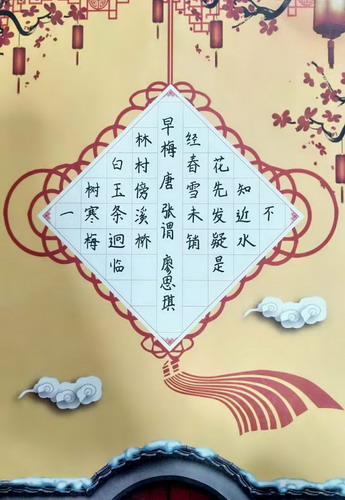 早梅 唐 张谓 廖思琪
一
树寒梅
白玉条迥临
林村傍溪桥
不
知近水
花先发疑是
经春雪未销